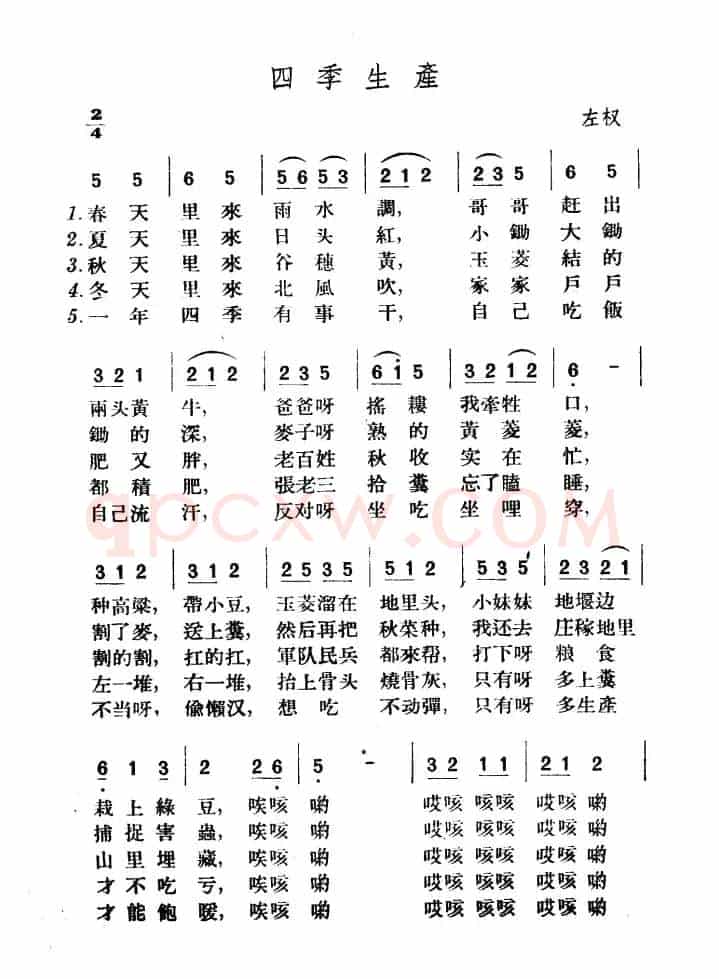 四季生產
2/4 左权
5 5 | 6 5 | 56 53 | 212 | 235 | 6 5 |
1.春天里來雨水調,哥哥赶出
2.夏天里來日头紅,小鋤大鋤
3.秋天里來谷穗黃,玉茭結的
4.冬天里來北風吹,家家戶戶
5.一年四季有事干,自己吃飯
321 | 212 | 235 | 6i5 | 321 2 | 6 - |
兩头黃牛,爸爸呀搖耬我牽牲口,
鋤的深,麥子呀熟的黃菱菱,
肥又胖,老百姓秋收实在忙,
都積肥,張老三拾糞忘了瞌睡,
自己流汗,反对呀坐吃坐哩穿,
qpcxw.com
312 | 312 | 2535 | 512 | 535 | 2321 |
种高粱,帶小豆,玉茭溜在地里头,小妹妹地堰边
割了麥,送上糞,然后再把秋菜种,我还去庄稼地里
割的割,扛的扛,軍队民兵都來帮,打下呀粮食
左一堆,右一堆,抬上骨头燒骨灰,只有呀多上糞
不当呀,偸懶汉,想吃不动彈,只有呀多生產
6 1 3 | 2 26 | 5 - | 32 11 | 21 2 |
栽上綠豆,唉咳喲哎咳咳咳哎咳喲
捕捉害蟲,唉咳喲哎咳咳咳哎咳喲
山里埋藏,唉咳喲哎咳咳咳哎咳喲
才不吃亏,唉咳喲哎咳咳咳哎咳喲
才能飽暖,唉咳喲哎咳咳咳哎咳喲